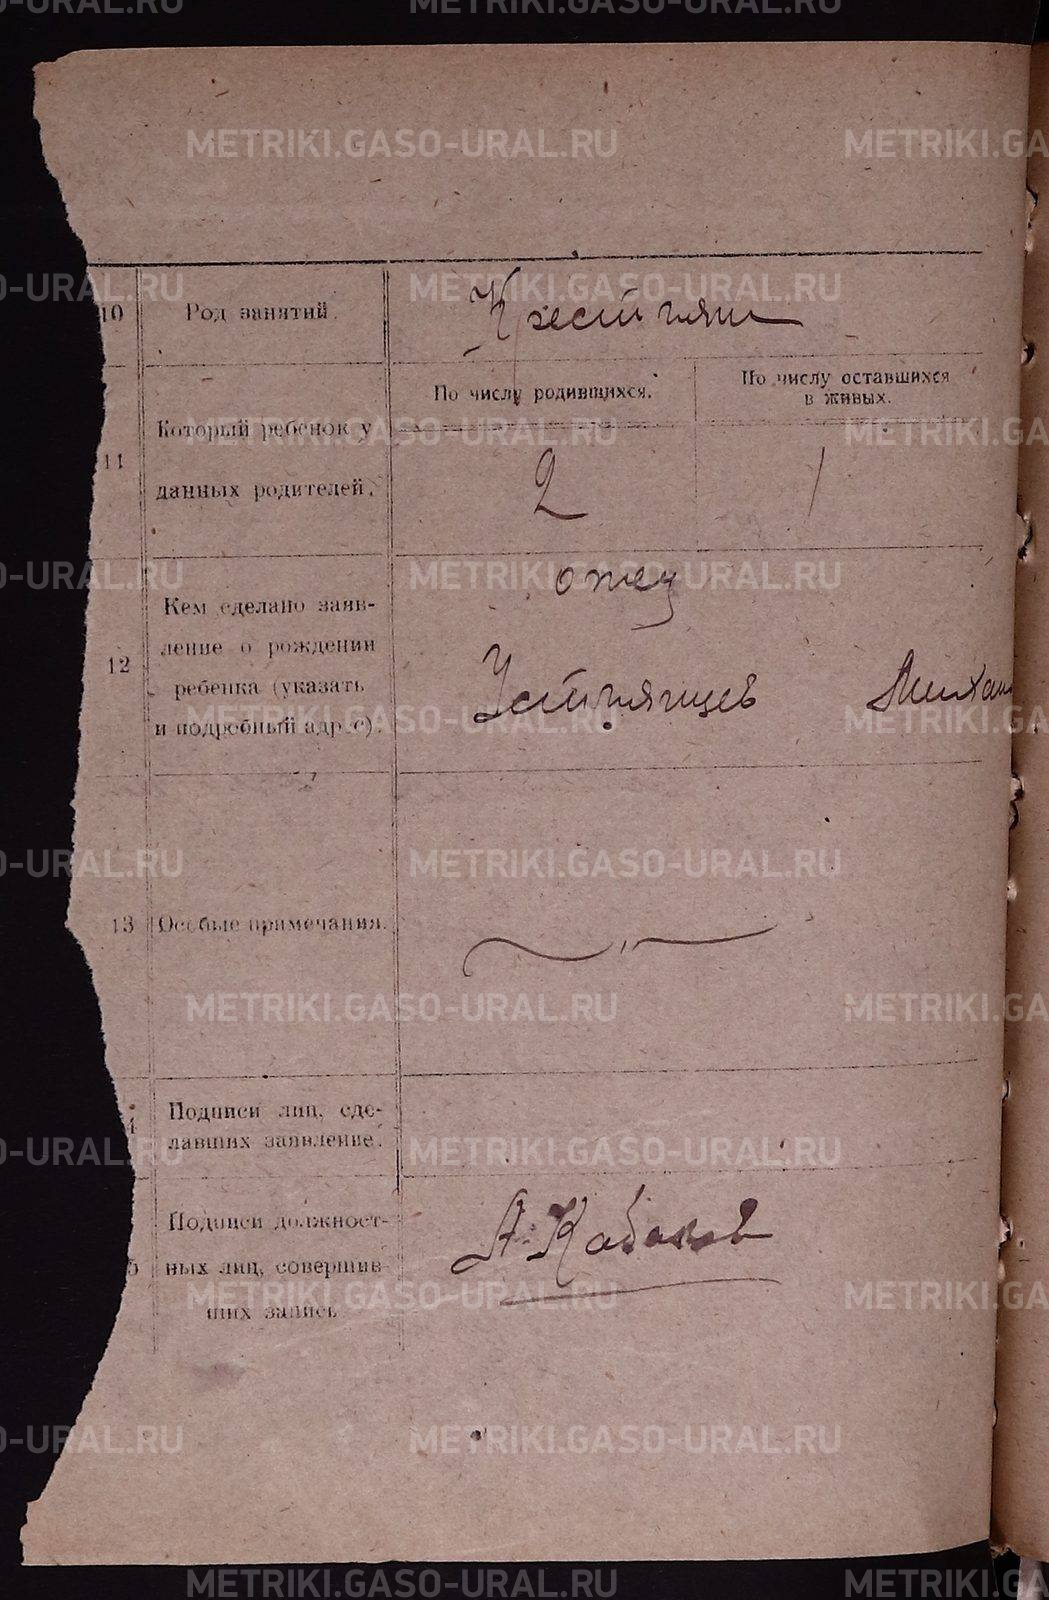 10 Род занятий. Крестьян
11 Который ребенок у данных родителей.
По числу родившихся.
По числу оставшихся
в живых.
2 1
12 Кем сделано заяв-
ление о рождении
ребенка (указать
и подробный адрес).
отец
Устьянцев Михаи
13 Особые примечания.
4 Подписи лиц, сде-
лавших заявление.
5 Подписи должност-
ных лиц, совершив-
ших запись
А. Кабаков
METRIKI.GASO-URAL.RU